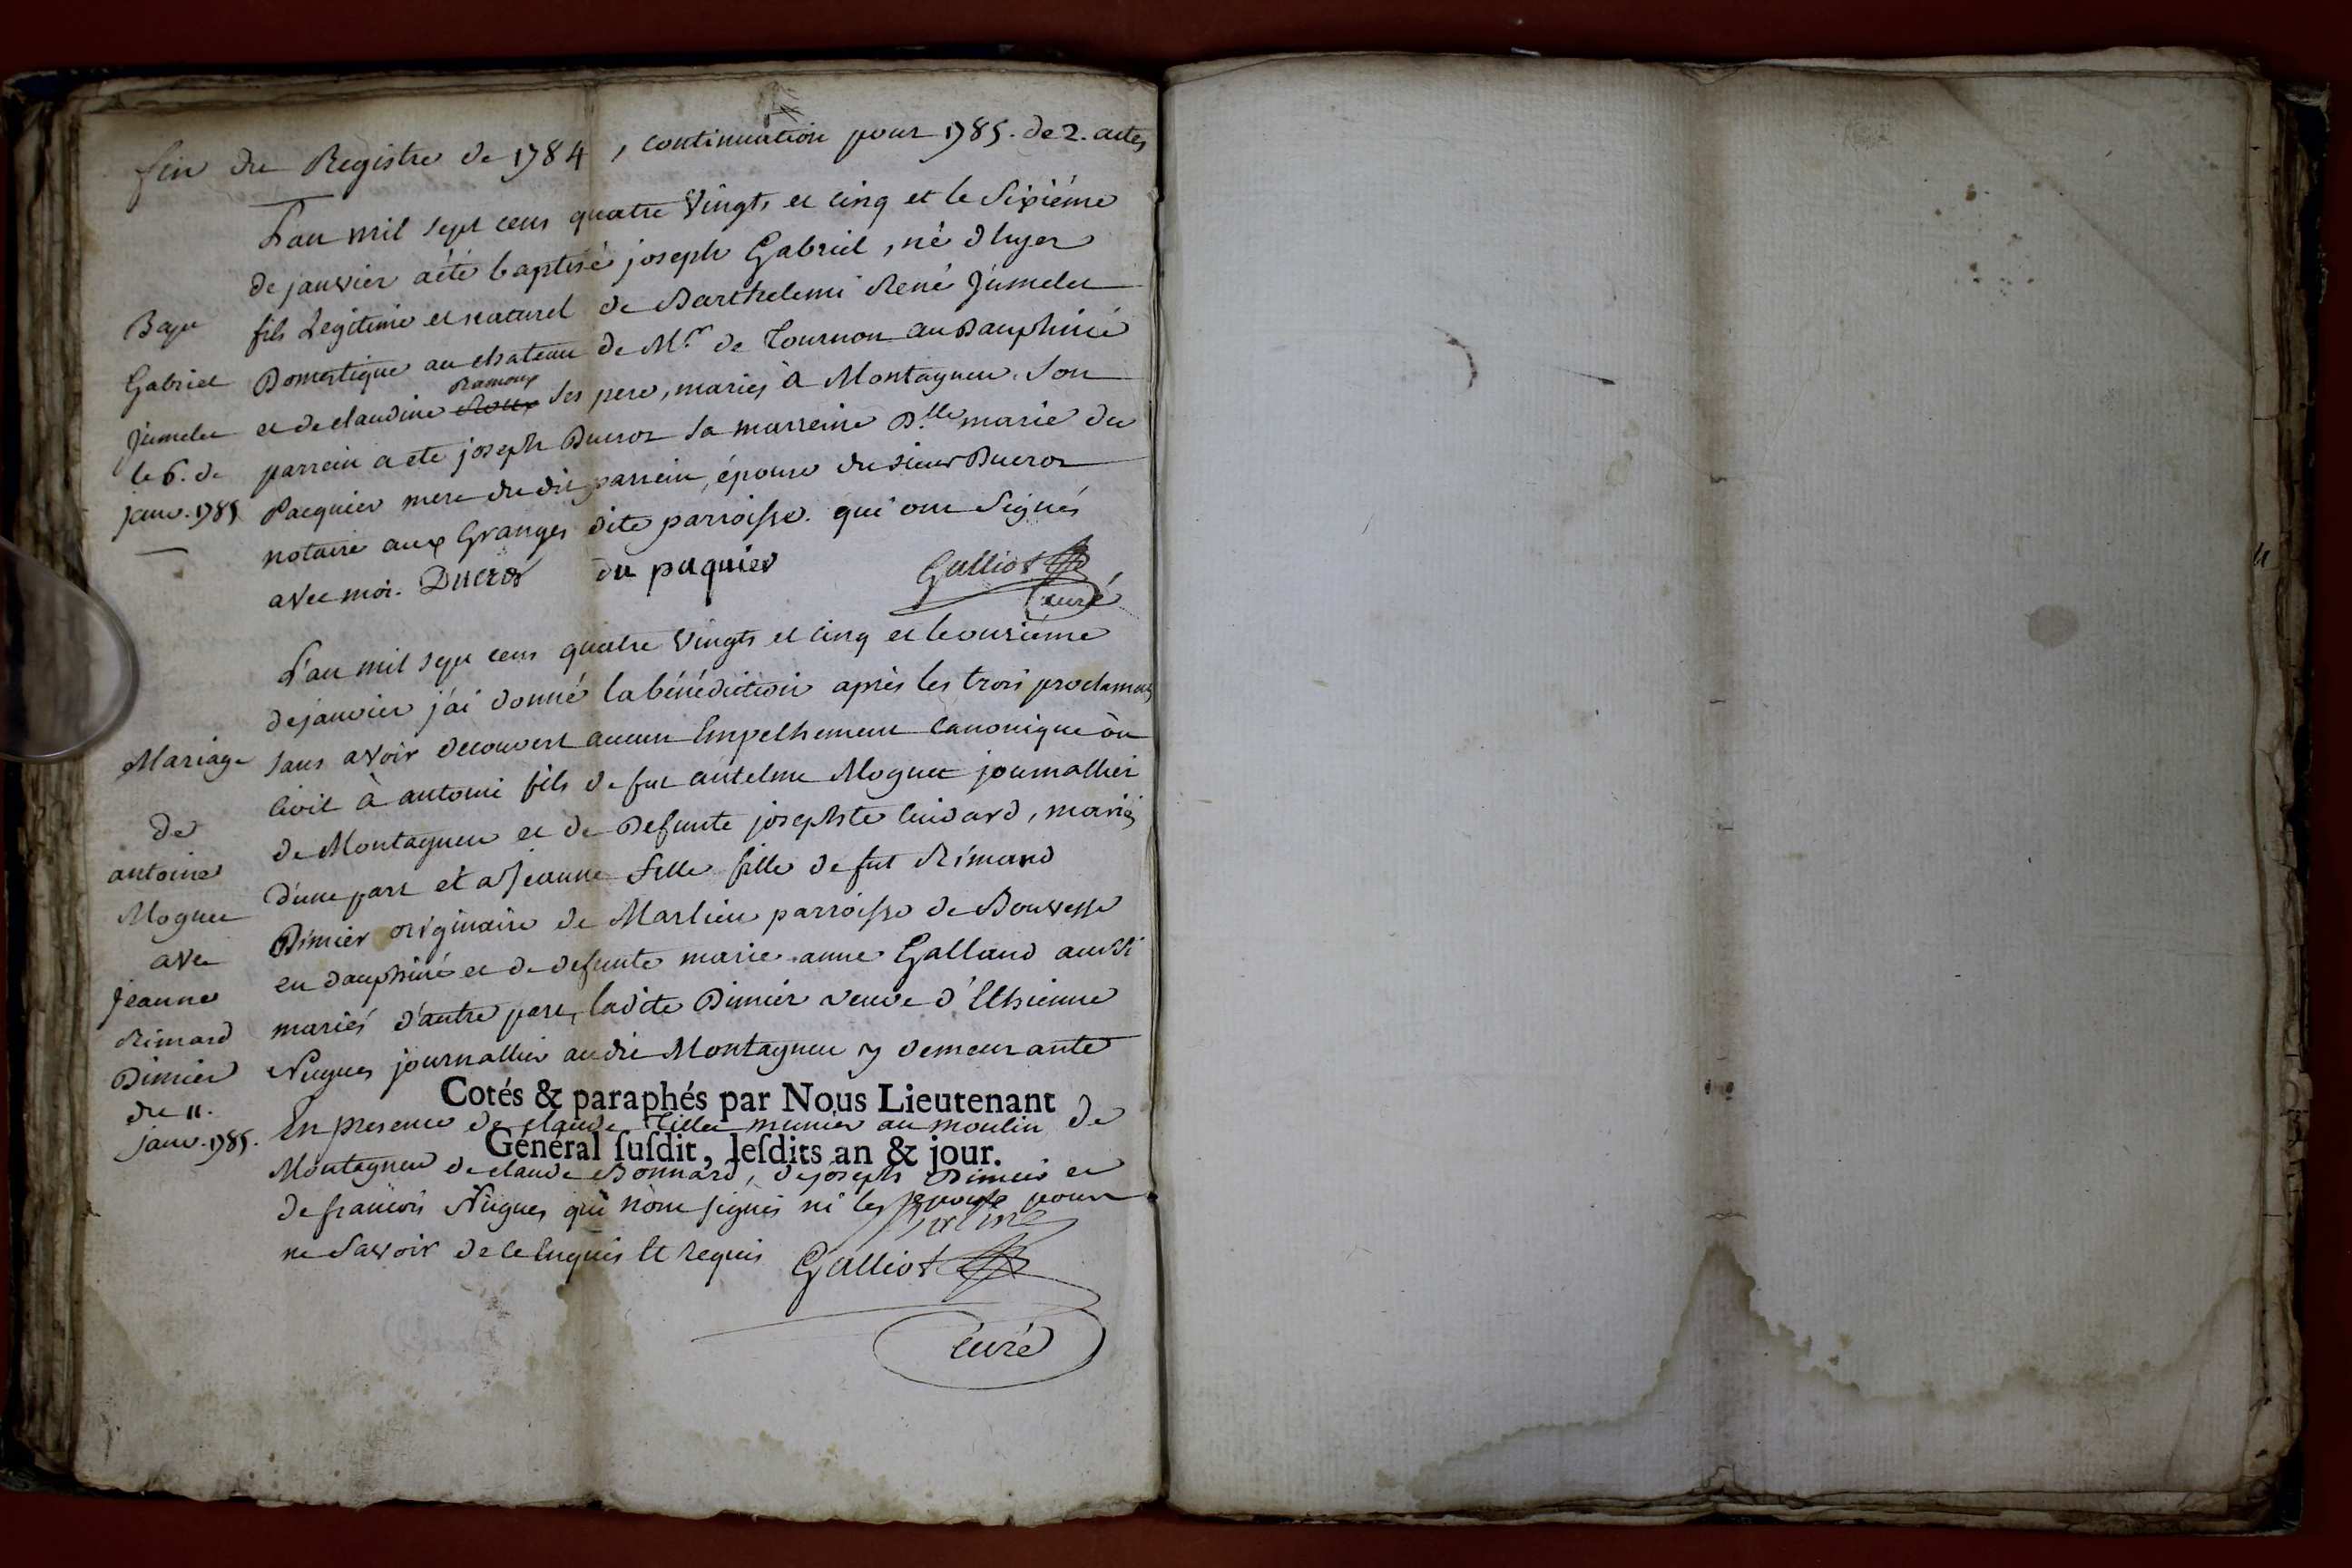 fin du Registre de 1784, continuation pour 1785. de 2. actes
L'an mil sept cens quatre vingts et cinq et le sixiéme
de janvier a été baptisé joseph Gabriel, né d'hyer
fils Legitime et naturel de Barthelemi René Jumelet
Domestique au chateau de Mr. de Tournon au Dauphiné
Ramoux
et de claudine Roux ses pere, mariés à Montagneu. Son
parrein a ete joseph Ducroz sa marreine Dlle marie du
Pacquier mere du dit parrein, épouse du sieur Ducroz
notaire aux Granges dite parroisse. qui ont Signés
avec moi. Ducroz du paquier Galliot
Curé
Bapt
Gabriel
Jumelet
le 6. de
janv. 1785
L'an mil sept cens quatre vingts et cinq et le onziéme
de janvier j'ai donné la bénédiction après les trois proclamats
sans avoir decouvert aucun Empechement canonique ou
civil à antoine fils de fut antelme Moguet journallier
de Montagneu et de Defunte josephte Cuidard, mariés
d'une part et a Jeanne fille de fut Rimand
Dimier originaire de Marlieu parroisse de Bouvesse
en dauphiné et de defunte marie anne Galland aussi
mariés d'autre part, ladite Dimier veuve d'Ethienne
Nugues journallier audit Montagneu y demeurante
Cotés & paraphés par Nous Lieutenant
En presence de claude Tillet munier au moulin de
Général susdit, lesdits an & jour.
Montagneu de claude Bonnard, de joseph Dimier et
de francois Nugues qui n'ont signés ni les epoux pour
ne Savoir de ce Enquis et Requis Galliot
Curé
Mariage
de
antoine
Moguet
avec
Jeanne
Rimard
Dimier
du 11.
janv. 1785.